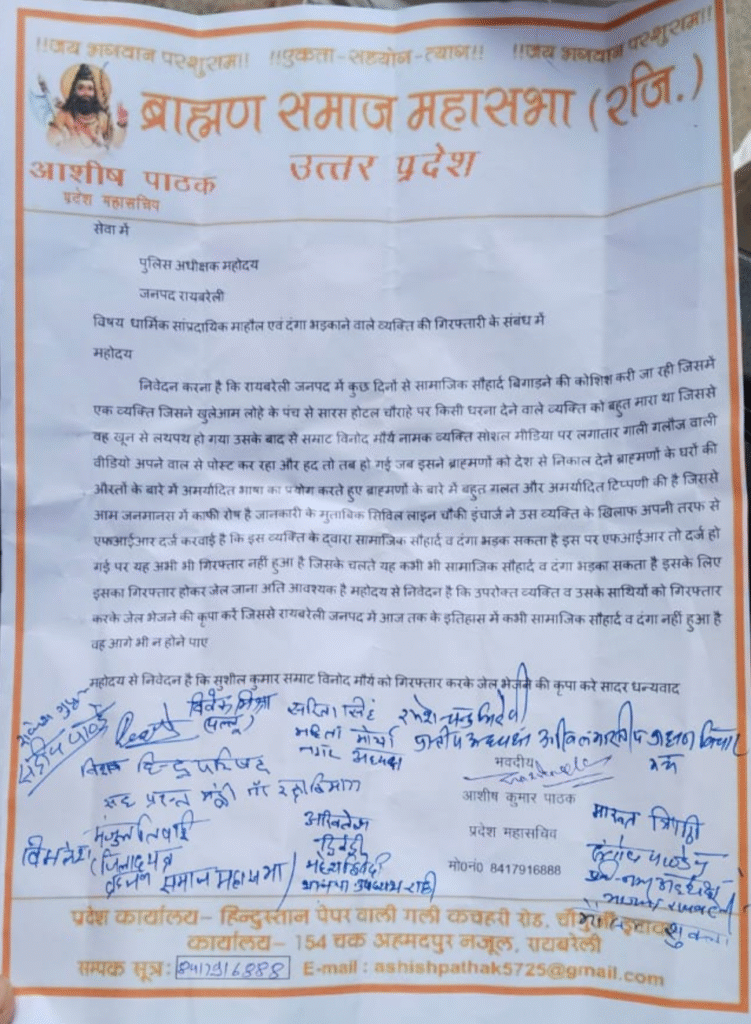 !!जय भगवान परशुराम!! !!एकता-सहयोग-त्याग!! !!जय भगवान परशुराम!!
ब्राह्मण समाज महासभा (रजि.)
उत्तर प्रदेश
आशीष पाठक
प्रदेश महासचिप
सेवा में
पुलिस अधीक्षक महोदय
जनपद रायबरेली
विषय धार्मिक सांप्रदायिक माहौल एवं दंगा भड़काने वाले व्यक्ति की गिरफ्तारी के संबंध में
महोदय
निवेदन करना है कि रायबरेली जनपद में कुछ दिनों से सामाजिक सौहार्द बिगाड़ने की कोशिश करी जा रही जिसमें
एक व्यक्ति जिसने खुलेआम लोहे के पंच से सारस होटल चौराहे पर किसी धरना देने वाले व्यक्ति को बहुत मारा था जिससे
वह खून से लथपथ हो गया उसके बाद से सम्राट विनोद मौर्य नामक व्यक्ति सोशल मीडिया पर लगातार गाली गलौज वाली
वीडियो अपने वाल से पोस्ट कर रहा और हद तो तब हो गई जब इसने ब्राह्मणों को देश से निकाल देने ब्राह्मणों के घरों की
औरतों के बारे में अमर्यादित भाषा का प्रयोग करते हुए ब्राह्मणों के बारे में बहुत गलत और अमर्यादित टिप्पणी की है जिससे
आम जनमानस में काफी रोष है जानकारी के मुताबिक सिविल लाइन चौकी इंचार्ज ने उस व्यक्ति के खिलाफ अपनी तरफ से
एफआईआर दर्ज करवाई है कि इस व्यक्ति के द्वारा सामाजिक सौहार्द व दंगा भड़क सकता है इस पर एफआईआर तो दर्ज हो
गई पर यह अभी भी गिरफ्तार नहीं हुआ है जिसके चलते यह कभी भी सामाजिक सौहार्द व दंगा भड़का सकता है इसके लिए
इसका गिरफ्तार होकर जेल जाना अति आवश्यक है महोदय से निवेदन है कि उपरोक्त व्यक्ति व उसके साथियों को गिरफ्तार
करके जेल भेजने की कृपा करें जिससे रायबरेली जनपद में आज तक के इतिहास में कभी सामाजिक सौहार्द व दंगा नहीं हुआ है
वह आगे भी न होने पाए
महोदय से निवेदन है कि सुशील कुमार सम्राट विनोद मौर्य को गिरफ्तार करके जेल भेजने की कृपा करे सादर धन्यवाद
संदीप पाठक
विवेक मिश्रा
सरिता सिंह
महिला मोर्चा
नगर अध्यक्ष
रमेश चन्द्र त्रिवेदी
हिन्दू परिषद
भवदीय
आशीष कुमार पाठक
प्रदेश महासचिव
मो0नं0 8417916888
मंजुल तिवारी
समाज महासभा
अखिलेश
द्विवेदी
मारुत त्रिपाठी
शुक्ला
प्रदेश कार्यालय- हिन्दुस्तान पेपर वाली गली कचहरी रोड,
कार्यालय- 154 चक अहमदपुर नजूल, रायबरेली
सम्पक सूत्र: 8417916888 E-mail : ashishpathak5725@gmail.com